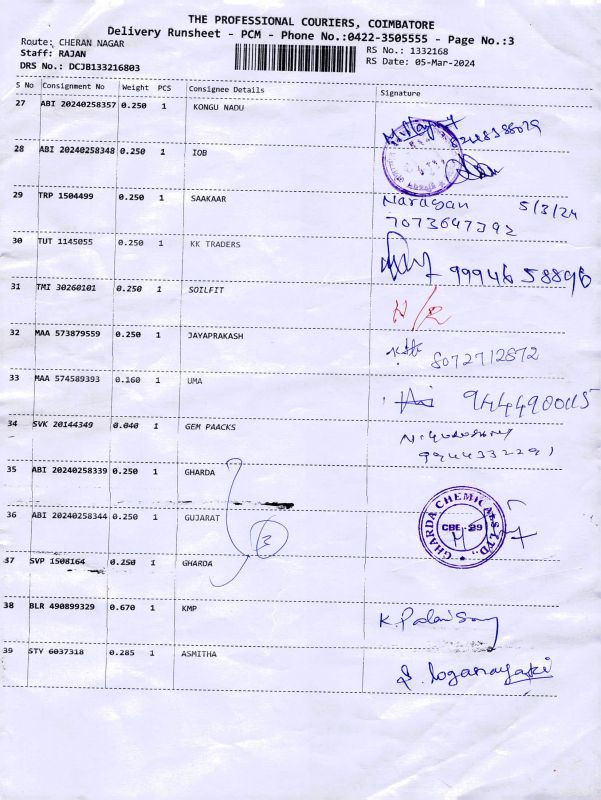 THE PROFESSIONAL COURIERS, COIMBATORE
Delivery Runsheet - PCM - Phone No.:0422-3505555 - Page No.:3
Route: CHERAN NAGAR
RS No.: 1332168
Staff: RAJAN
RS Date: 05-Mar-2024
DRS No.: DCJB133216803
S No Consignment No Weight PCS Consignee Details Signature
27 ABI 20240258357 0.250 1 KONGU NADU
28 ABI 20240258348 0.250 1 IOB
29 TRP 1504499 0.250 1 SAAKAAR Narayan 5/3/24
7073647392
30 TUT 1145055 0.250 1 KK TRADERS 9994658896
31 TMI 30260101 0.250 1 SOILFIT N/R
32 MAA 573879559 0.250 1 JAYAPRAKASH 8072712872
33 MAA 574589393 0.160 1 UMA
34 SVK 20144349 0.040 1 GEM PAACKS
9944332291
35 ABI 20240258339 0.250 1 GHARDA
36 ABI 20240258344 0.250 1 GUJARAT 3 GHARDA CHEMICALS LTD., CBE-29
37 SVP 1508164 0.250 1 GHARDA
38 BLR 490899329 0.670 1 KMP
39 STY 6037318 0.285 1 ASMITHA